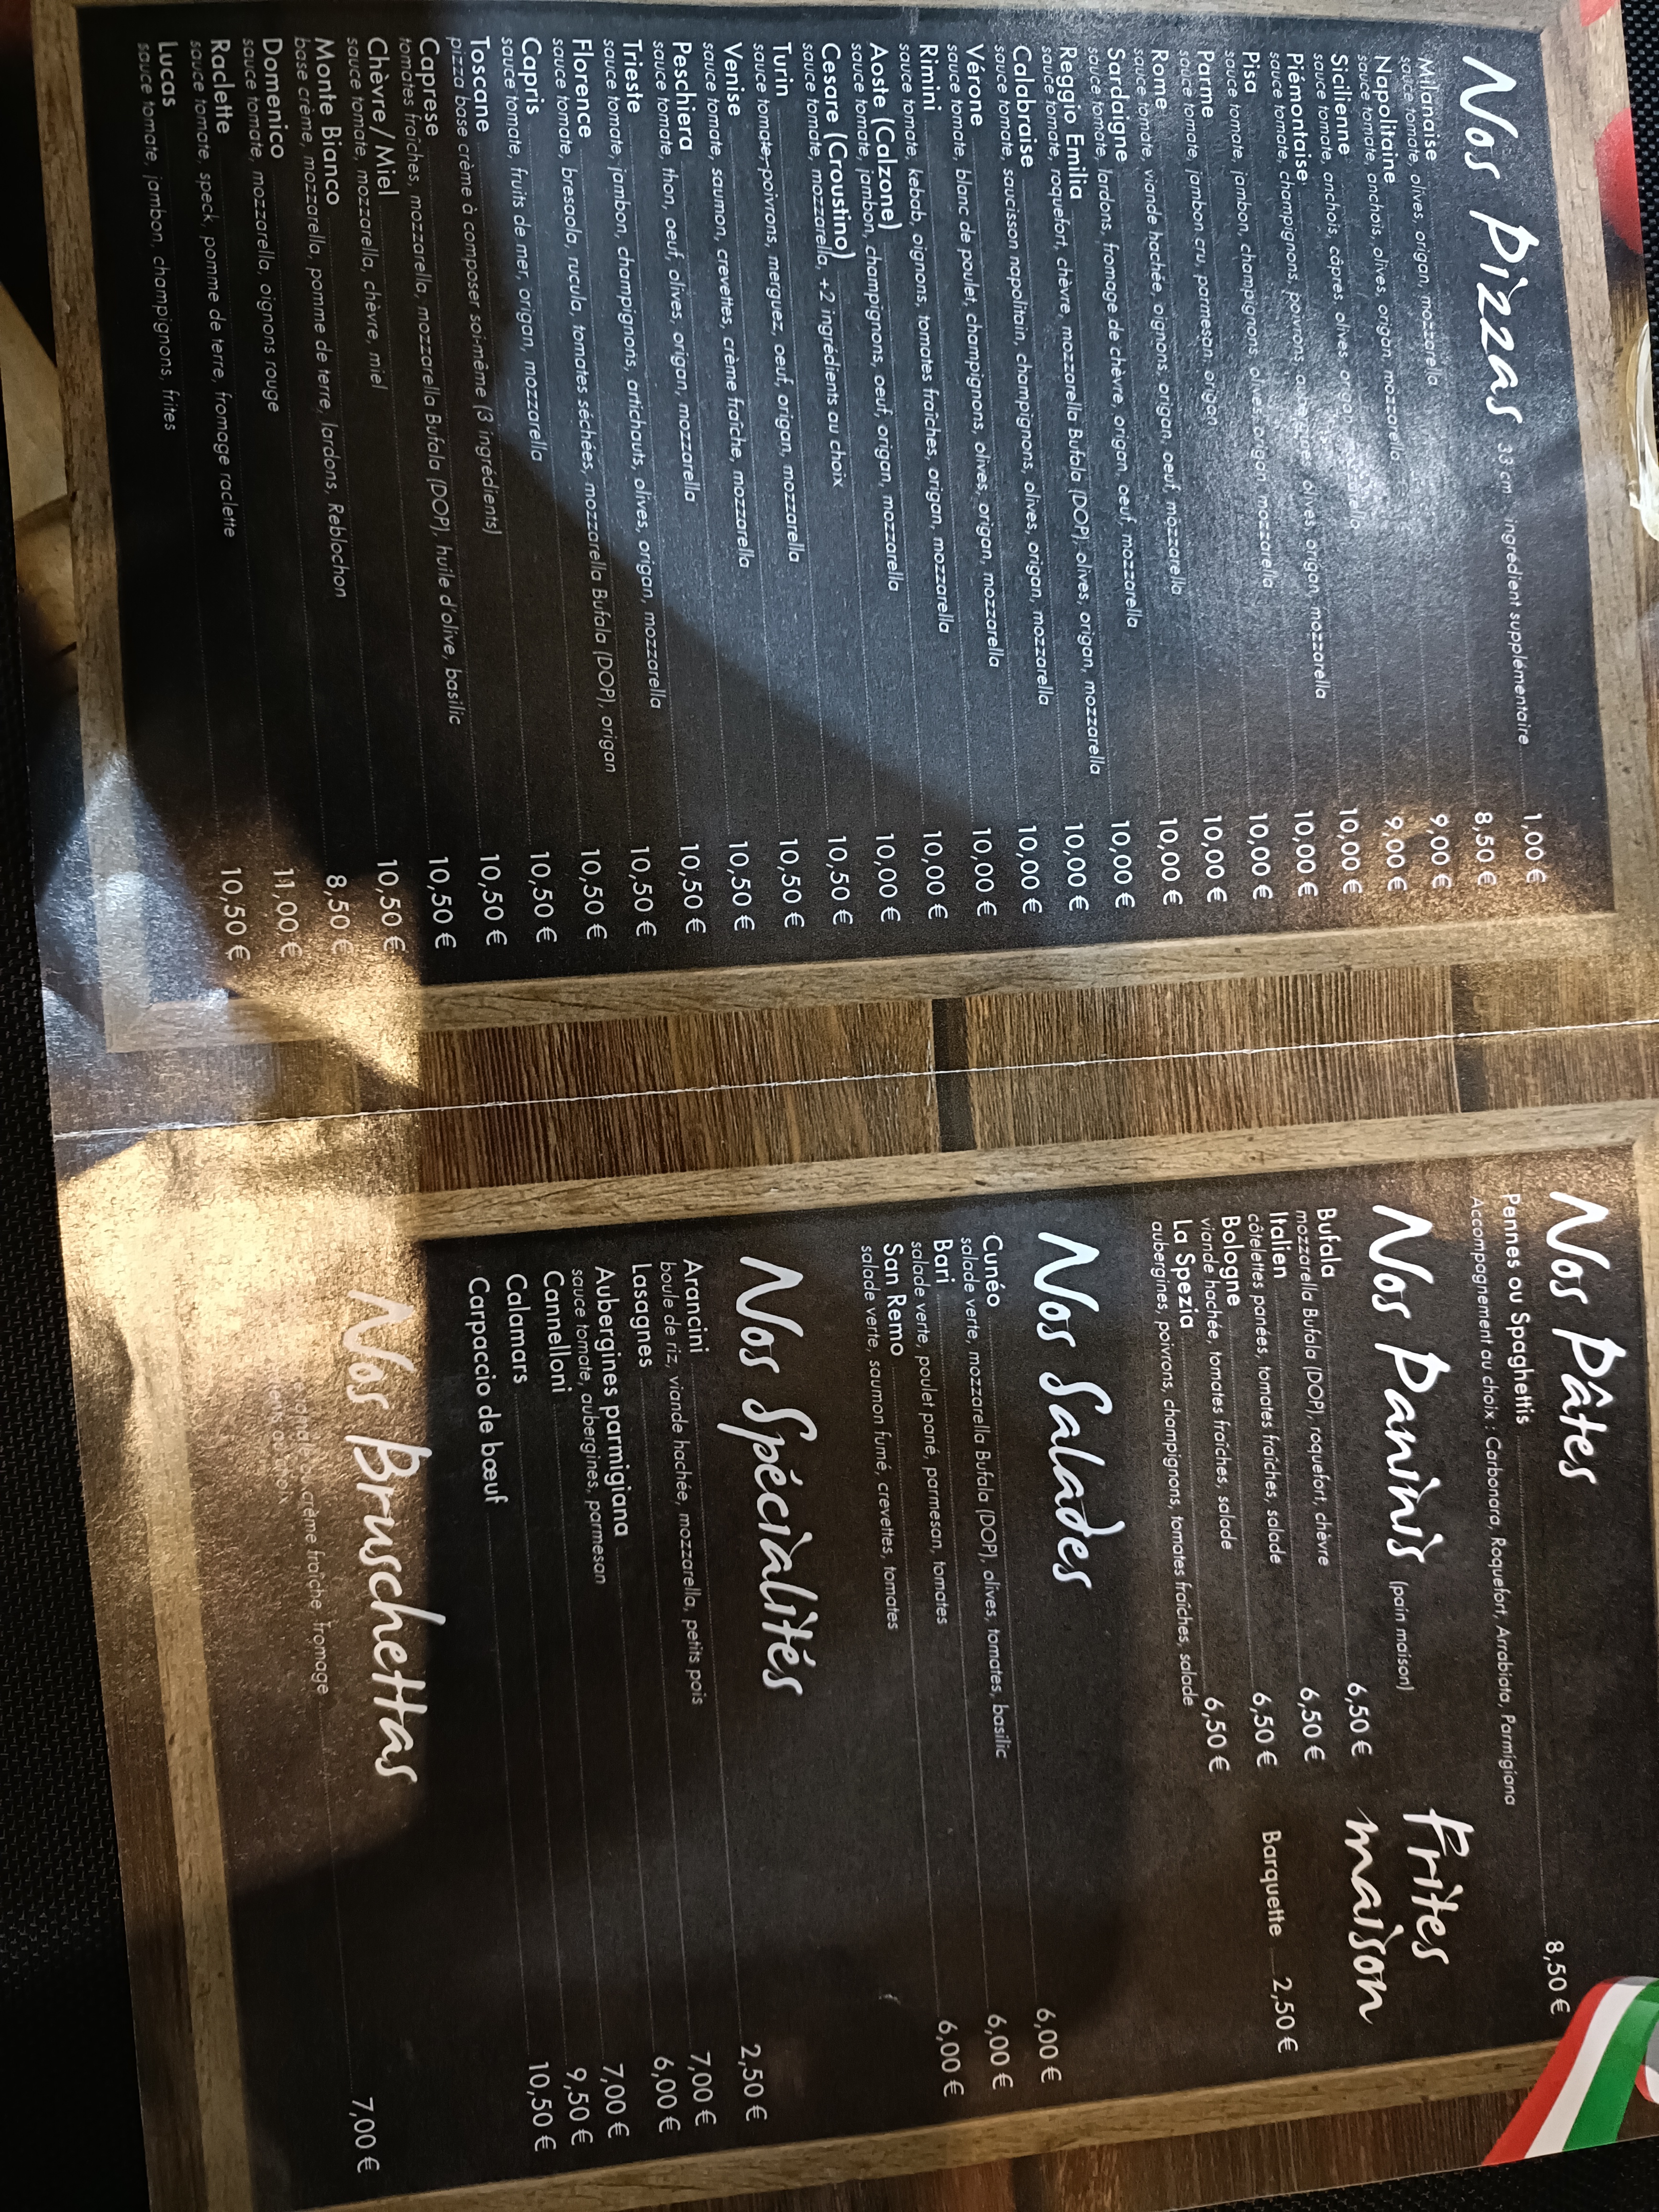 Nos Pizzas 33 cm
ingrédient supplémentaire 1,00 €
Milanaise 8,50 €
sauce tomate, olives, origan, mozzarella
Napolitaine 9,00 €
sauce tomate, anchois, olives, origan, mozzarella
Sicilienne 9,00 €
sauce tomate, anchois, câpres, olives, origan, mozzarella
Piémontaise 10,00 €
sauce tomate, champignons, poivrons, aubergine, olives, origan, mozzarella
Pisa 10,00 €
sauce tomate, jambon, champignons, olives, origan, mozzarella
Parme 10,00 €
sauce tomate, jambon cru, parmesan, origan
Rome 10,00 €
sauce tomate, viande hachée, oignons, origan, oeuf, mozzarella
Sardaigne 10,00 €
sauce tomate, lardons, fromage de chèvre, origan, oeuf, mozzarella
Reggio Emilia 10,00 €
sauce tomate, roquefort, chèvre, mozzarella Bufala (DOP), olives, origan, mozzarella
Calabraise 10,00 €
sauce tomate, saucisson napolitain, champignons, olives, origan, mozzarella
Vérone 10,00 €
sauce tomate, blanc de poulet, champignons, olives, origan, mozzarella
Rimini 10,00 €
sauce tomate, kebab, oignons, tomates fraîches, origan, mozzarella
Aoste (Calzone) 10,00 €
sauce tomate, jambon, champignons, oeuf, origan, mozzarella
Cesare (Croustino) 10,00 €
sauce tomate, mozzarella, +2 ingrédients au choix
Turin 10,50 €
sauce tomate, poivrons, merguez, oeuf, origan, mozzarella
Venise 10,50 €
sauce tomate, saumon, crevettes, crème fraîche, mozzarella
Peschiera 10,50 €
sauce tomate, thon, oeuf, olives, origan, mozzarella
Trieste 10,50 €
sauce tomate, jambon, champignons, artichauts, olives, origan, mozzarella
Florence 10,50 €
sauce tomate, bresaola, rucula, tomates séchées, mozzarella Bufala (DOP), origan
Capris 10,50 €
sauce tomate, fruits de mer, origan, mozzarella
Toscane 10,50 €
pizza base crème à composer soi-même (3 ingrédients)
Caprese 10,50 €
tomates fraîches, mozzarella, mozzarella Bufala (DOP), huile d'olive, basilic
Chèvre/Miel 10,50 €
sauce tomate, mozzarella, chèvre, miel
Monte Bianco 10,50 €
base crème, mozzarella, pomme de terre, lardons, Reblochon
Domenico 8,50 €
sauce tomate, mozzarella, oignons rouge
Raclette 11,00 €
sauce tomate, speck, pomme de terre, fromage raclette
Lucas 10,50 €
sauce tomate, jambon, champignons, frites
Nos Pâtes
Pennes ou Spaghettis 8,50 €
Accompagnement au choix : Carbonara, Roquefort, Arrabiata, Parmigiana
Nos Paninis (pain maison)
Bufala 6,50 €
mozzarella Bufala (DOP), roquefort, chèvre
Italien 6,50 €
côtelettes panées, tomates fraîches, salade
Bologne 6,50 €
viande hachée, tomates fraîches, salade
La Spezia 6,50 €
aubergines, poivrons, champignons, tomates fraîches, salade
Frites
maison
Barquette 2,50 €
Nos Salades
Cunéo 6,00 €
salade verte, mozzarella Bufala (DOP), olives, tomates, basilic
Bari 6,00 €
salade verte, poulet pané, parmesan, tomates
San Remo 6,00 €
salade verte, saumon fumé, crevettes, tomates
Nos Spécialités
Arancini 2,50 €
boule de riz, viande hachée, mozzarella, petits pois
Lasagnes 7,00 €
Aubergines parmigiana 6,00 €
sauce tomate, aubergines, parmesan
Cannelloni 7,00 €
Calamars 9,50 €
Carpaccio de bœuf 10,50 €
Nos Bruschettas
tomate ou crème fraîche, fromage 7,00 €